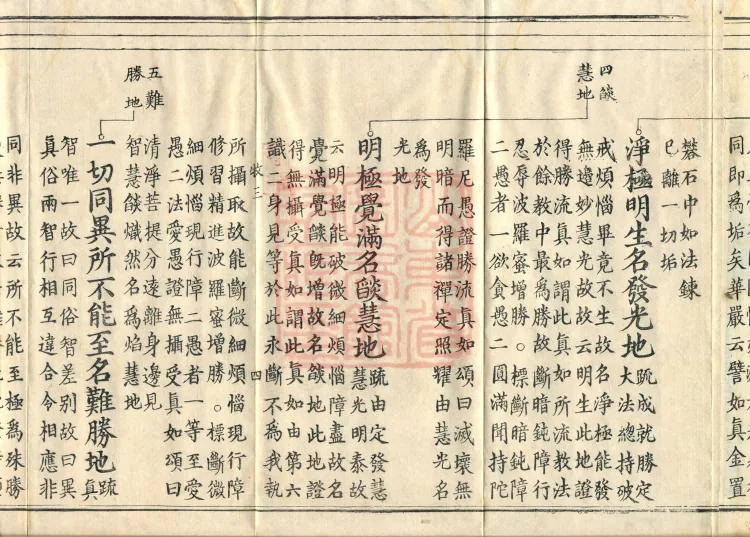 同即為垢矣華嚴云譬如真金置
礬石中如法鍊
已離一切垢
淨極明生名發光地
疏成就勝定
大法總持破
戒煩惱畢竟不生故名淨極能發
無邊妙慧光故故云明生此地證
得勝流真如謂此真如所流教法
於餘教中最為勝故斷暗鈍障行
忍辱波羅蜜增勝。標斷暗鈍障
二愚者一欲貪愚二圓滿聞持陀
四燄
慧地
羅尼愚證勝流真如頌曰滅壞無
明暗而得諸禪定照耀由慧光名
為發
光地
明極覺滿名燄慧地
疏由定發慧
慧光明泰故
云明極能破微細煩惱障盡故名
覺滿覺燄既增故名燄地此地證
得無攝受真如謂此真如由第六
識二身見等於此永斷不為我執
牧三
四
所攝取故能斷微細煩惱現行障
修習精進波羅蜜增勝。標斷微
細煩惱現行障二愚者一等至愛
愚二法愛愚證無攝受真如頌曰
清淨菩提分遠離身邊見
智慧燄熾然名為焰慧地
五難
勝地
一切同異所不能至名難勝地
疏
真
智唯一故曰同俗智差別故曰異
真俗兩智行相互違合令相應非
同非異故云所不能至極為殊勝